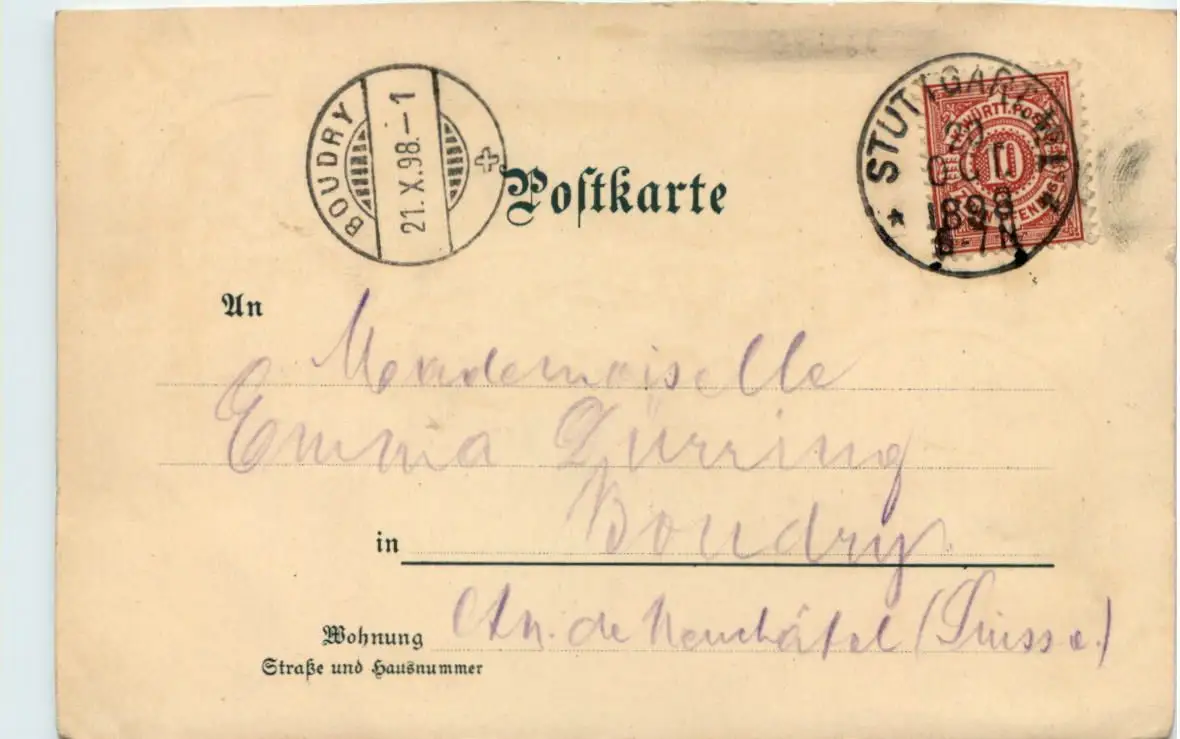 BOUDRY
21. X. 98. – 1
Postkarte
STUTTGART
20
OCT
1898
6-7 N
K. WÜRTT. POST
10
PFENNIG
An
Mademoiselle
Emma Dürring
in Boudry.
Wohnung Ctn. de Neuchâtel (Suisse.)
Straße und Hausnummer